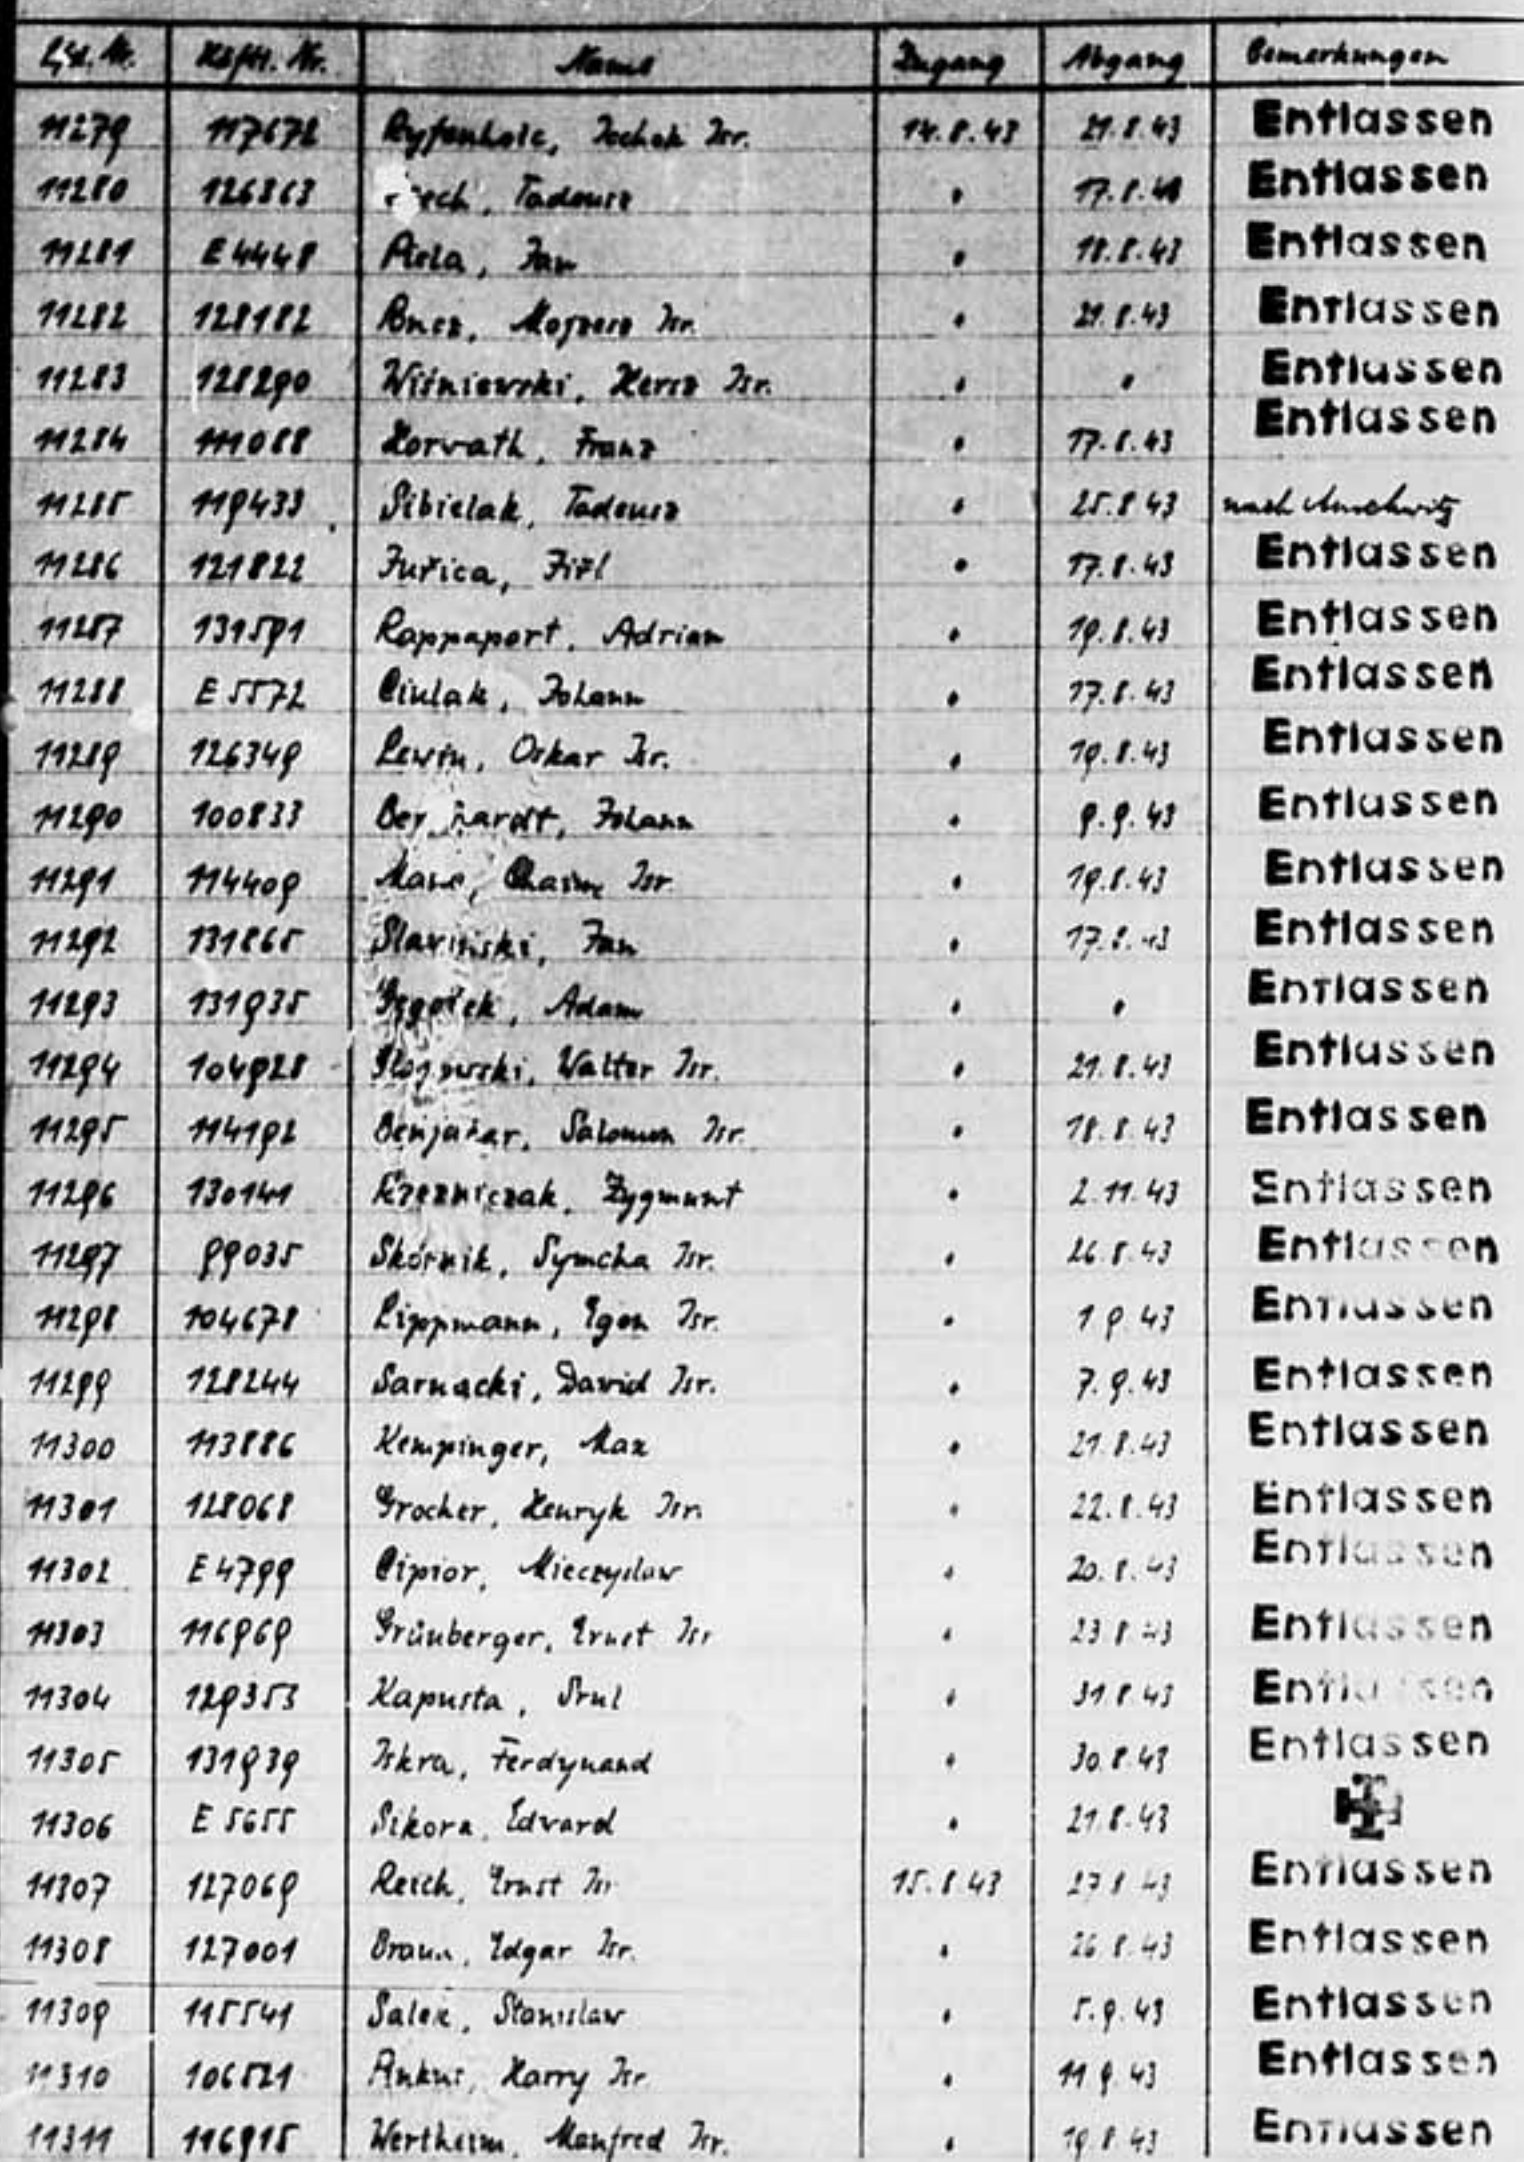 Lfd. Nr. Häftl. Nr. Name Zugang Abgang Bemerkungen
11279 117672 Isr. 14.8.43 21.8.43 Entlassen
11280 126363 Tadeusz " 17.8.43 Entlassen
11281 E 4448 Piela, Jan " 18.8.43 Entlassen
11282 128182 Isr. " 21.8.43 Entlassen
11283 128290 Wiśniewski, Hersz Isr. " " Entlassen
11284 111088 Horvath, Franz " 17.8.43 Entlassen
11285 119433 Sibielak, Tadeusz " 25.8.43 nach Auschwitz
11286 121822 Juřica, Jiří " 17.8.43 Entlassen
11287 131591 Rappaport, Adrian " 19.8.43 Entlassen
11288 E 5572 Ciulak, Johann " 17.8.43 Entlassen
11289 126349 Lewin, Oskar Isr. " 19.8.43 Entlassen
11290 100833 Johann " 9.9.43 Entlassen
11291 114409 Chaim Isr. " 19.8.43 Entlassen
11292 131865 Jan " 17.8.43 Entlassen
11293 131935 Adam " " Entlassen
11294 104928 Walter Isr. " 21.8.43 Entlassen
11295 114192 Salomon Isr. " 18.8.43 Entlassen
11296 130141 Zygmunt " 2.11.43 Entlassen
11297 99035 Skórnik, Symcha Isr. " 26.8.43 Entlassen
11298 104678 Lippmann, Egon Isr. " 1.9.43 Entlassen
11299 128244 Sarnacki, David Isr. " 7.9.43 Entlassen
11300 113886 Kempinger, Max " 21.8.43 Entlassen
11301 128068 Grocher, Henryk Isr. " 22.8.43 Entlassen
11302 E 4799 Cipior, Mieczyslaw " 20.8.43 Entlassen
11303 116969 Grünberger, Ernst Isr " 23.8.43 Entlassen
11304 129353 Kapusta, Srul " 31.8.43 Entlassen
11305 131939 Iskra, Ferdynand " 30.8.43 Entlassen
11306 E 5655 Sikora, Edvard " 21.8.43
11307 127069 Reich, Ernst Isr 15.8.43 27.8.43 Entlassen
11308 127001 Braun, Edgar Isr. " 26.8.43 Entlassen
11309 115541 Salek, Stanislaw " 5.9.43 Entlassen
11310 106521 Harry Isr. " 11.9.43 Entlassen
11311 116915 Wertheim, Manfred Isr. " 19.8.43 Entlassen